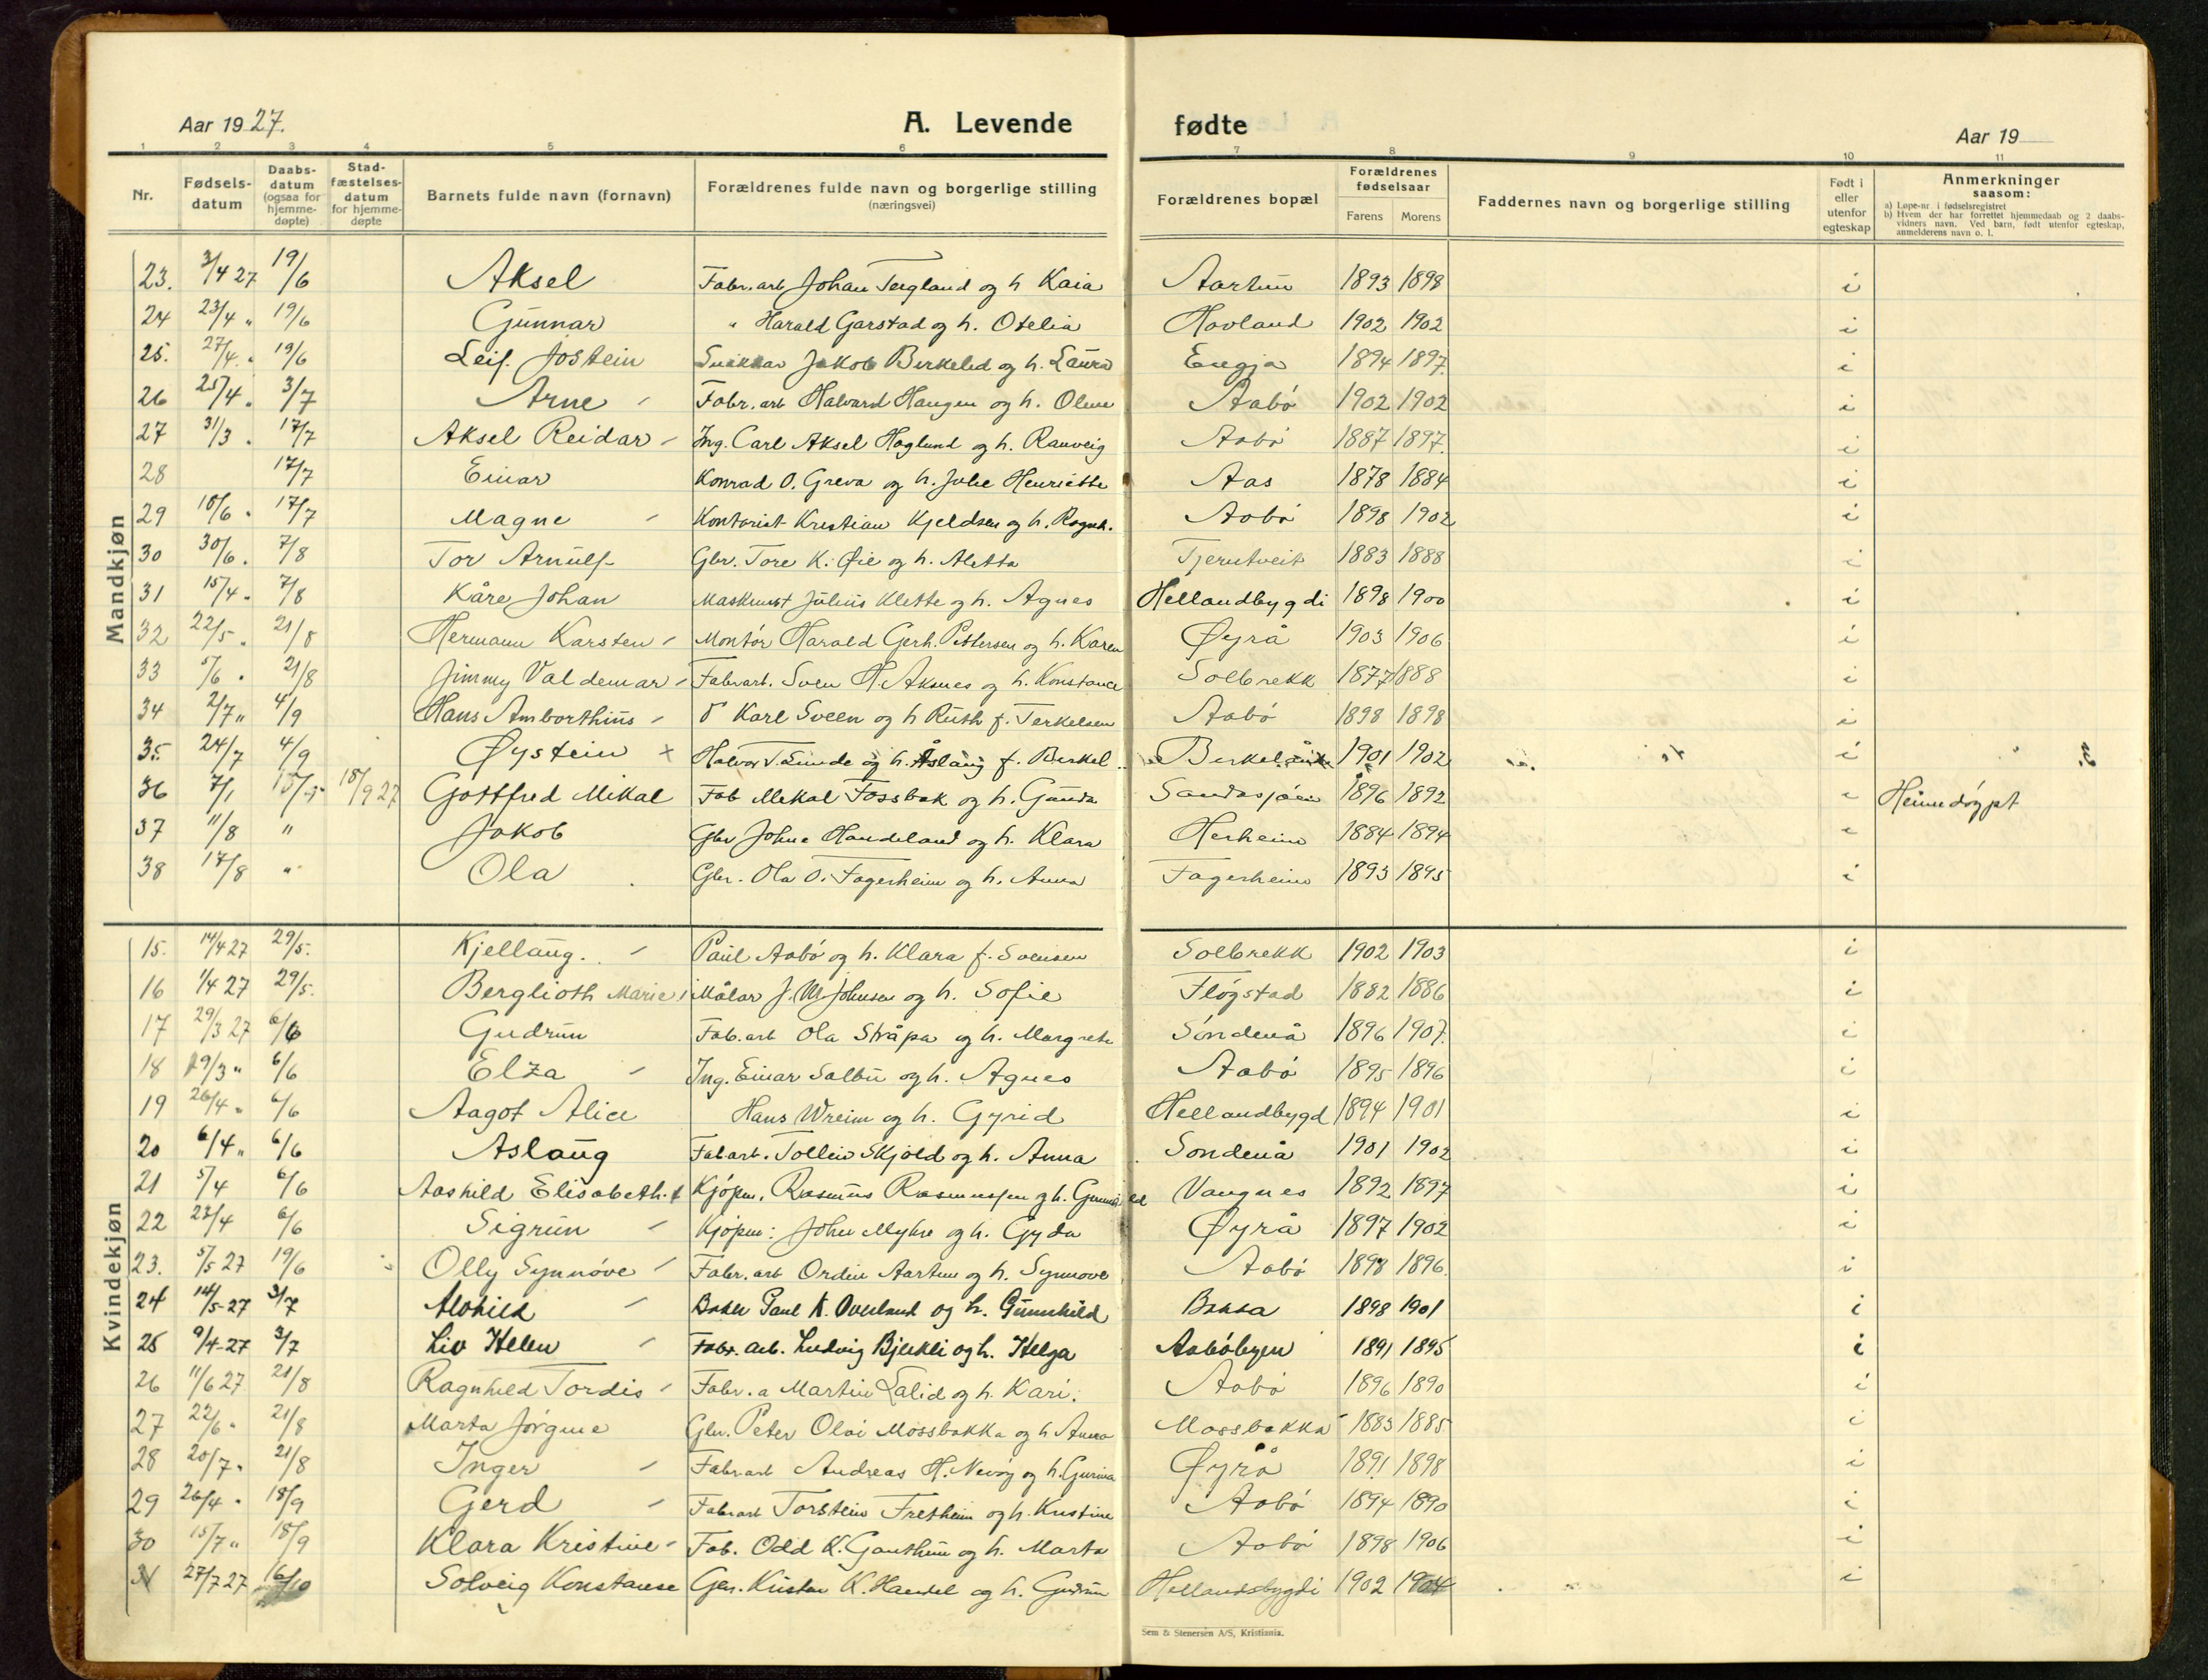 Aar 1927.
A. Levende
fødte
Aar 19
1 2 3 4 5 6 7 8 9 10 11
Nr.
Fødsels-datum
Daabs-datum (ogsaa for hjemme-døpte)
Stad-fæstelses-datum for hjemme-døpte
Barnets fulde navn (fornavn)
Forældrenes fulde navn og borgerlige stilling (næringsvei)
Forældrenes bopæl
Forældrenes fødselsaar
Farens
Morens
Faddernes navn og borgerlige stilling
Født i eller utenfor egteskap
Anmerkninger saasom:
a) Løpe-nr. i fødselsregistret
b) Hvem der har forrettet hjemmedaab og 2 daabs-vidners navn. Ved barn, født utenfor egteskap, anmelderens navn o. l.
Mandkjøn
23. 3/4 27 19/6 Aksel Fabr. arb Johan Tengland og h Kaia Aartun 1893 1898 i
24 23/4 „ 19/6 Gunnar „ Harald Garstad og h. Otelia Hovland 1902 1902 i
25. 27/4 „ 19/6 Leif Jostein Snikkar Jakob Birkeled og h. Laura Engja 1894 1897. i
26 25/4 „ 3/7 Arne Fabr. arb Halvard Haugen og h. Oline Aabø 1902 1902 i
27 31/3 „ 17/7 Aksel Reidar Ing. Carl Aksel Hoglund og h. Ranveig Aabø 1887 1897. i
28 17/7 Einar Konrad O. Greva og h. Julie Henriette Aas 1878 1884 i
29 18/6 „ 17/7 Magne Kontorist Kristian Kjeldsen og h. Ragnh. Aabø 1898 1902 i
30 30/6 „ 7/8 Tor Arnulf Gbr. Tore K. Øie og h. Aletta Tjerutveit 1883 1888 i
31 15/4 „ 7/8 Kåre Johan Maskinist Julius Klette og h. Agnes Hellandbygdi 1898 1900 i
32 22/5 „ 21/8 Hermann Karsten Montør Harald Gerh. Pettersen og h. Karen Øyrå 1903 1906 i
33 5/6 „ 21/8 Jimmy Valdemar Fabr arb. Sven H. Aksnes og h. Konstance Solbrekk 1877 1888 i
34 2/7 „ 4/9 Hans Amborthius Karl Sveen og h Ruth f. Terkelsen Aabø 1898 1898 i
35. 24/7 4/9 Øystein x Halvor T. Lunde og h. Åslaug f. Berkel 1901 1902 i
36 7/1 18/9 27 Gottfred Mikal Fab Mekal Fossbak og h. Gunda Sandasjøen 1896 1892 Heimedøypt
37 11/8 „ Jakob Gbr Johne Handeland og h. Klara Herheim 1884 1894
38 17/8 „ Ola Gbr. Ola O. Fagerheim og h. Anna Fagerheim 1893 1895 i
Kvindekjøn
15. 14/4 27 29/5. Kjellaug. Paul Aabø og h. Klara f. Svensen Solbrekk 1902 1903 i
16 1/4 27 29/5. Berglioth Marie Målar J. M. Johnsen og h. Sofie Fløgstad 1882 1886 i
17 29/3 27 6/6 Gudrun Fab. arb Ola Stråpa og h. Margrete Søndenå 1896 1907. i
18 29/3 „ 6/6 Elza Ing. Einar Salbu og h. Agnes Aabø 1895 1896 i
19 26/4 „ 6/6 Aagot Alice Hans Wreim og h. Gyrid Hellandbygd 1894 1901 i
20 6/4 „ 6/6 Aslaug Fabarb. Tollein Skjold og h. Anna Søndenå 1901 1902 i
21 5/4 6/6 Aashild Elisabeth. Kjøpm. Rasmus Rasmussen og h. Gunnild Vangnes 1892 1897 i
22 23/4 6/6 Sigrun Kjøpm: John Myhre og h. Gyda Øyrå 1897 1902 i
23. 5/5 27 19/6 Olly Synnøve Fabr. arb Ordin Aartun og h. Synnove Aabø 1898 1896. i
24 14/5-27 3/7 Alvhild Baker Paul K. Overland og h. Gunnhild Baksa 1898 1901 i
25 9/4-27 3/7 Liv Helen Fabr. arb. Ludvig Bjerkli og h. Helga Aabøbyen 1891 1895 i
26 11/6 27 21/8 Ragnhild Tordis Fabr. a Martin Lalid og h. Kari. Aabø 1896 1890 i
27 22/6 „ 21/8 Marta Jørgine Gbr. Peter Olai Mossbakka og h Anna Mossbakka 1883 1885 i
28 20/7 „ 21/8 Inger Fabr arb Andreas H. Nevøy og h. Gurina Øyrå 1891 1898 i
29 26/4 „ 18/9 Gerd Fabr arb Torstein Fretheim og h. Kristine Aabø 1894 1890 i
30 15/7 „ 18/9 Klara Kristine Fab. Odd K. Gautheim og h. Marta Aabø 1898 1906 i
31 27/7 27 16/10 Solveig Konstanse Gbr. Kristen K. Handel og h. Gudrun Hellandsbygdi 1902 1904 i
Sem & Stenersen A/S, Kristiania.